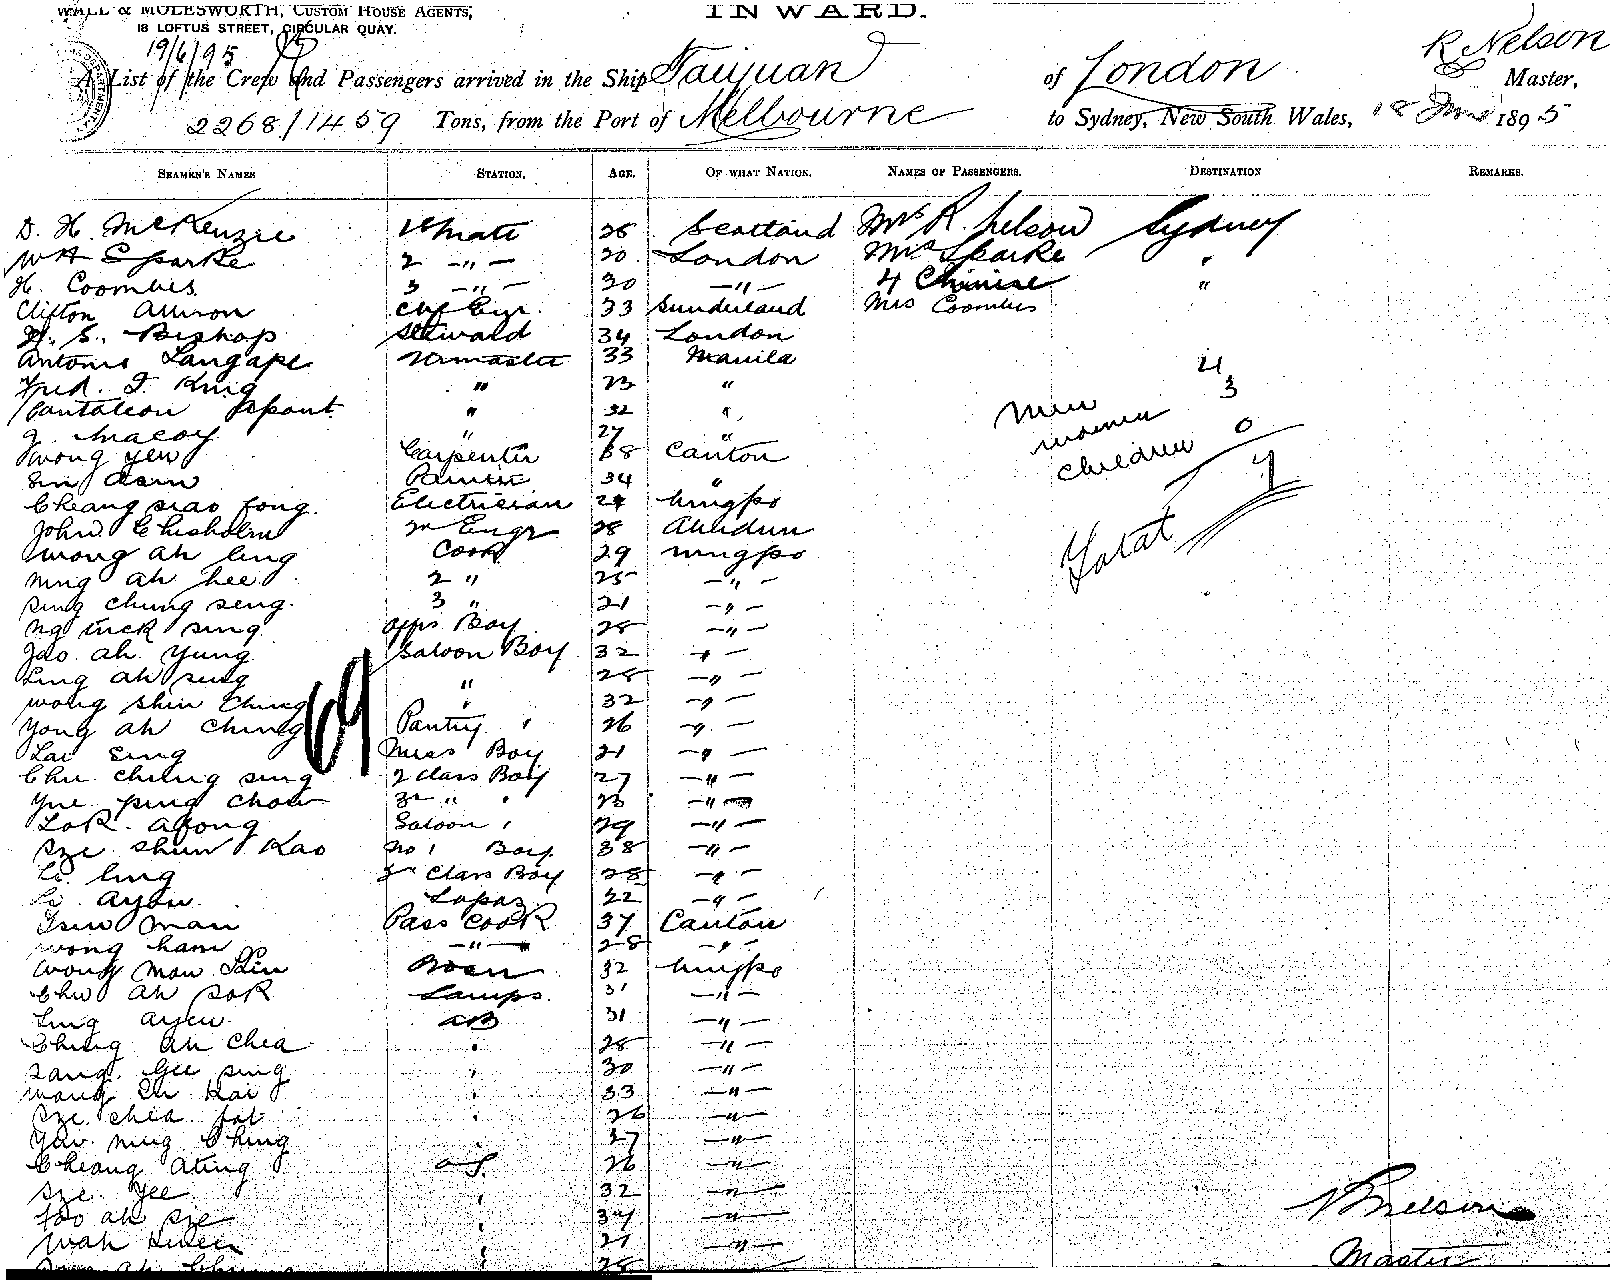 WALL & MOLESWORTH, CUSTOM HOUSE AGENTS,
18 LOFTUS STREET, CIRCULAR QUAY.
INWARD.
19/6/95
R Nelson
A List of the Crew and Passengers arrived in the Ship Taiyuan of London Master,
2268/1459 Tons, from the Port of Melbourne to Sydney, New South Wales, 18 June 1895
SEAMEN'S NAMES STATION. AGE. OF WHAT NATION. NAMES OF PASSENGERS. DESTINATION REMARKS.
D. H. McKenzie 1st Mate 26 Scotland Mrs R. Nelson Sydney
WH Sparke 2 -"- 20 London Mrs Sparke "
H. Coombes 3 -"- 30 -"- 4 Chinese "
Clifton Allison Chf Engr. 33 Sunderland Mrs Coombes
H. S. Bishop Steward 34 London
Antonio Langape 33 Manila
Fred. T. King " 23 "
Pantaleon " 32 "
J. Macoy " 27 "
Wong Yew Carpenter 38 Canton
34 "
Cheang Siao Fong. Electrician 24 Ningpo
John Chisholm 2n Engr 28 Aberdeen
Wong Ah Ling Cook 29 Ningpo
Ning Ah hee 2 " 25 -"-
Sing Chung Seng. 3 " 21 -"-
Ng Tuck Sing Offs Boy 28 -"-
Jao Ah Yung Saloon Boy 32 -"-
Ling Ah Sung " 28 -"-
Wong Shin Ching " 32 -"-
Yong Ah Ching Pantry " 26 -"-
Lai Sing Mess Boy 21 -"-
Chu Cheng Sing 2 Class Boy 27 -"-
Yue Ping Chow " 23 -"-
Lok Afong Saloon " 29 -"-
Sze Shun Kao No 1 Boy 38 -"-
Li Ling 2n Class Boy 28 -"-
Li Ayew 22 -"-
Man Pass Cook 37 Canton
Wong ham -"- 28 -"-
Wong Mow 32 Ningpo
Chu Ah Sok Lamps. 31 -"-
Ling Ayew AB 31 -"-
Ching Ah Chea " 28 -"-
Zang Gee Sing " 30 -"-
Wong Kai " 33 -"-
Sze Chea Fat " 26 -"-
Yaw Ning Ching 27 -"-
Cheang Ating OS. 26 -"-
Sze Yee " 32 -"-
Foo Ah Sze " 34 -"-
Wah " 27 -"-
Ah 28
69
Men 4
Women 3
Children 0
Total 7
R Nelson
Master